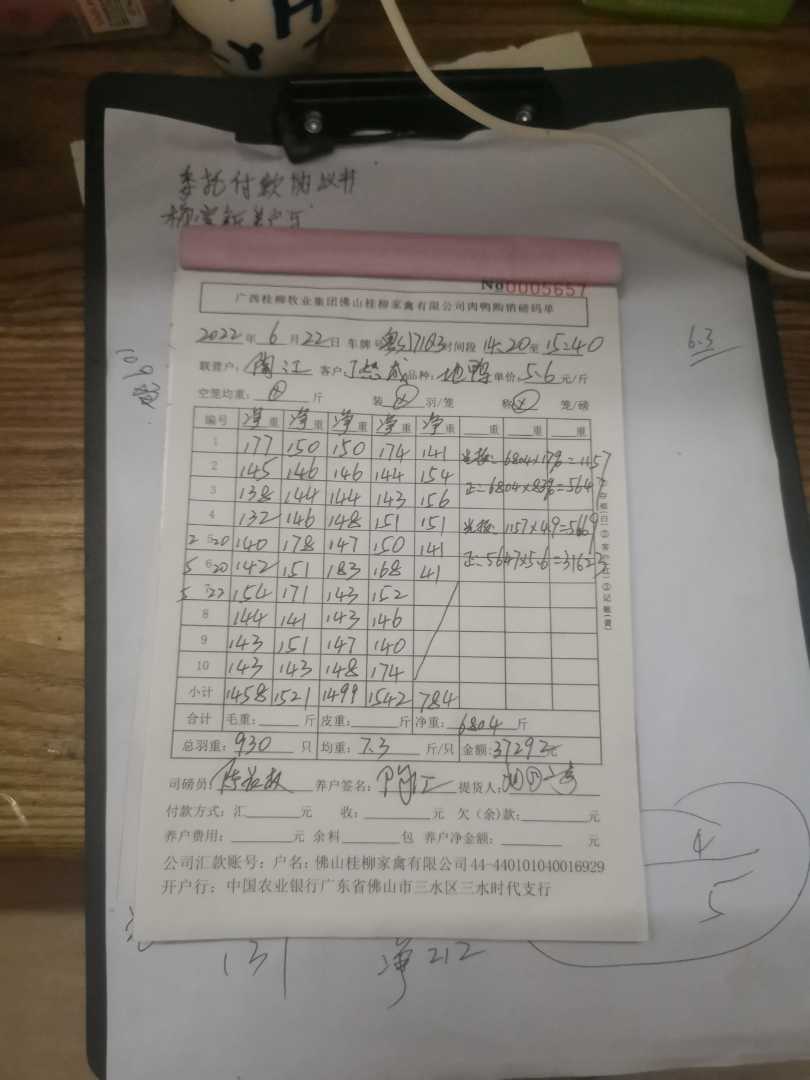 委托付款协议书
No0005657
广西桂柳牧业集团佛山桂柳家禽有限公司肉鸭购销磅码单
2022年6月22日 车牌号 时间段14:20至15:40
联营户: 江 客户: 成 品种: 地鸭 单价: 5.6元/斤
空笼均重: 斤 装 羽/笼 称 笼/磅
编号 净重 净重 净重 净重 净重 重 重 重
1 177 150 150 174 141 6804×17%=1157
2 145 146 146 144 154 正: 6804×83%=5647
3 138 144 144 143 156
4 132 146 148 151 151 1157×4.9=5669
2 20 5 140 178 147 150 141 正: 5647×5.6=31623
5 20 6 142 151 183 168 41
5 22 7 154 171 143 152
8 144 141 143 146
9 143 151 147 140
10 143 143 148 174
小计 1458 1521 1499 1542 784
合计 毛重: 斤 皮重: 斤 净重: 6804斤
总羽重: 930只 均重: 7.3斤/只 金额: 37292元
司磅员: 养户签名: 提货人:
付款方式: 汇 元 收: 元 欠(余)款: 元
养户费用: 元 余料 包 养户净金额: 元
公司汇款账号: 户名: 佛山桂柳家禽有限公司44-440101040016929
开户行: 中国农业银行广东省佛山市三水区三水时代支行
6.3
109
4
5
131 净212